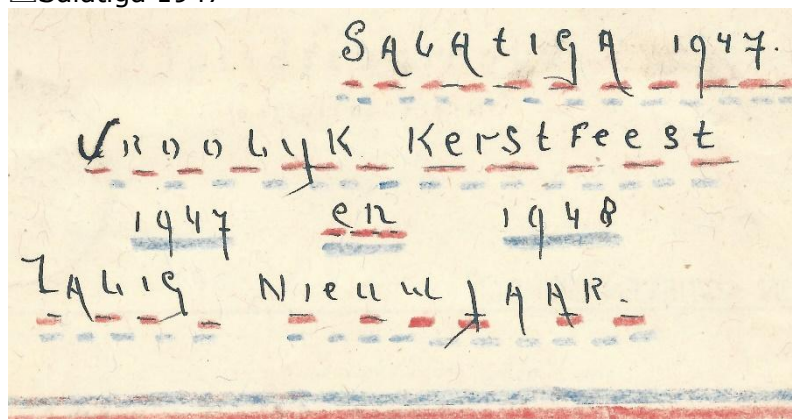 Salatiga 1947
SALAtIgA 1947.
VROOLyK KerStFeest
1947 en 1948
ZALIG NIeuw JAAR.